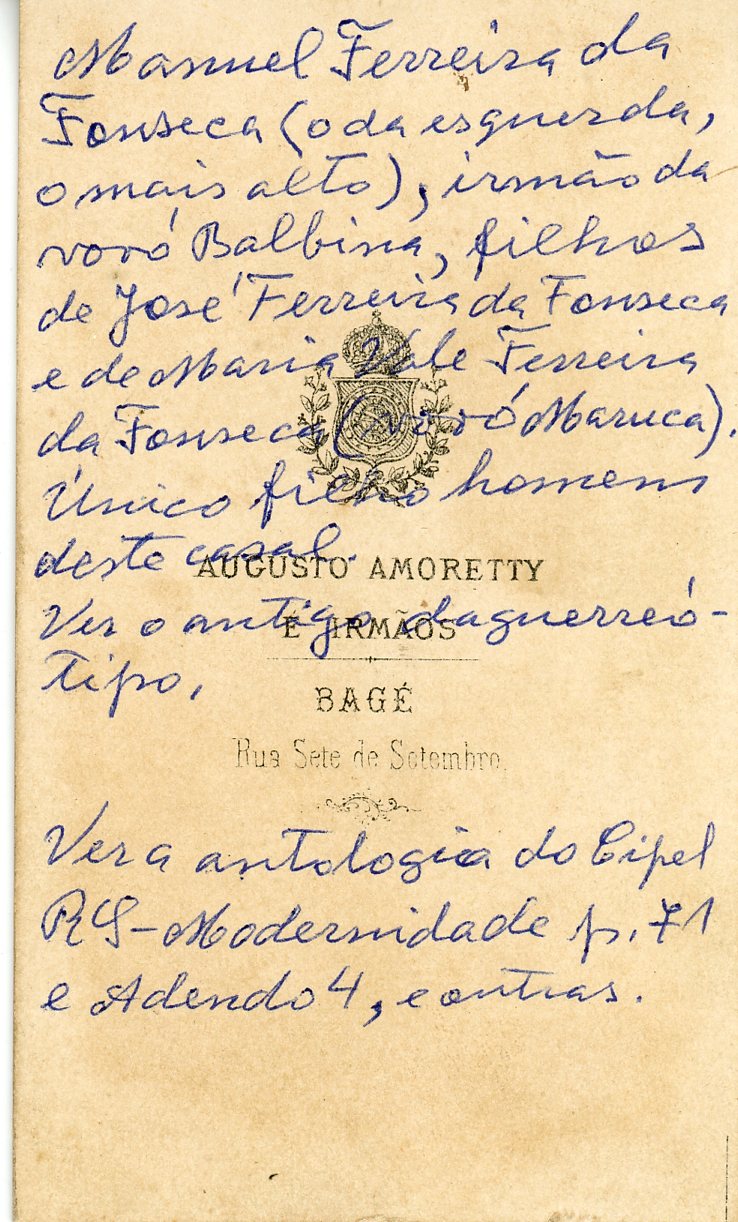 Manuel Ferreira da
Fonseca (o da esquerda,
o mais alto), irmão da
vovó Balbina, filhos
de José Ferreira da Fonseca
e de Maria Vale Ferreira
da Fonseca (vovó Maruca).
Único filho homem
deste casal.
AUGUSTO AMORETTY
Ver o antigo daguerreó-
E IRMÃOS
tipo.
BAGÉ
Rua Sete de Setembro
Ver a antologia do Cipel
RS-Modernidade p. 71
e Adendo 4, e outras.